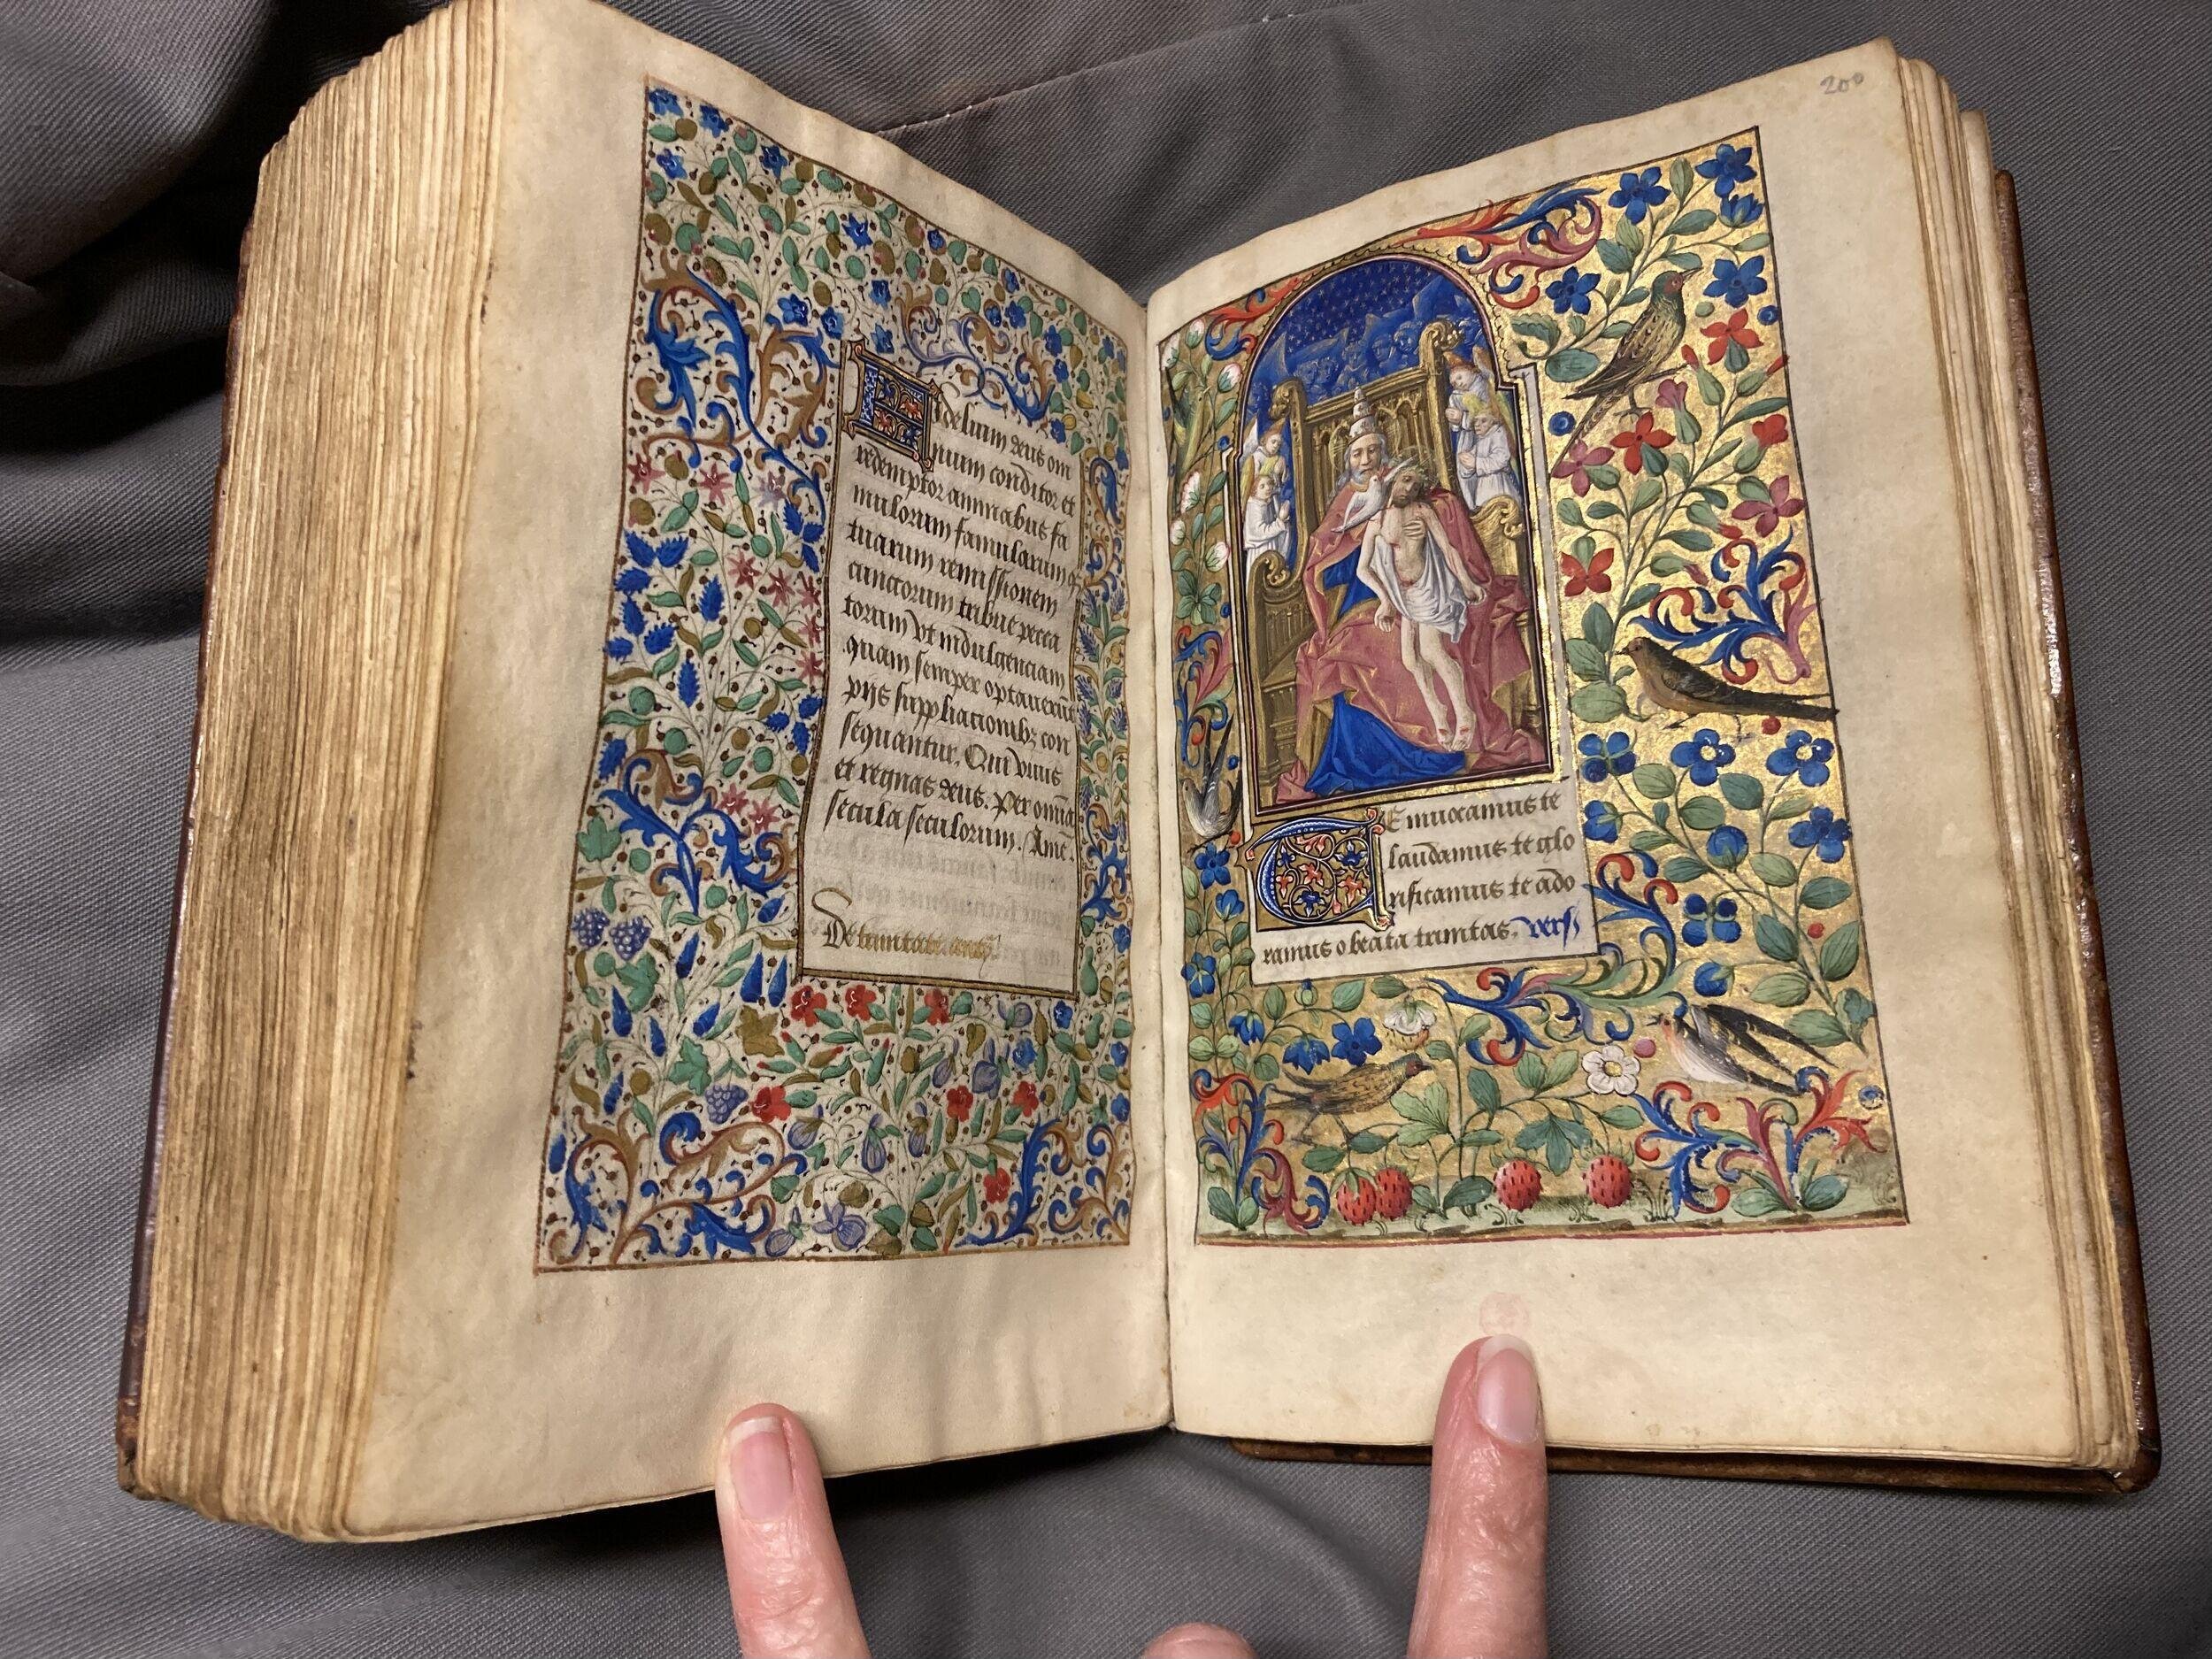 Fidelium deus om
nium conditor et
redemptor animabus fa
mulorum famularumq3
tuarum remissionem
cunctorum tribue pecca
torum vt indulgenciam
quam semper optauerūt
pijs supplicationib3 con
sequantur. Qui viuis
et regnas deus. Per oīa
secula seculorum. Amē.
De trinitate. antꝭ
200
TE inuocamus te
laudamus te glo
rificamus te ado
ramus o beata trinitas. vers